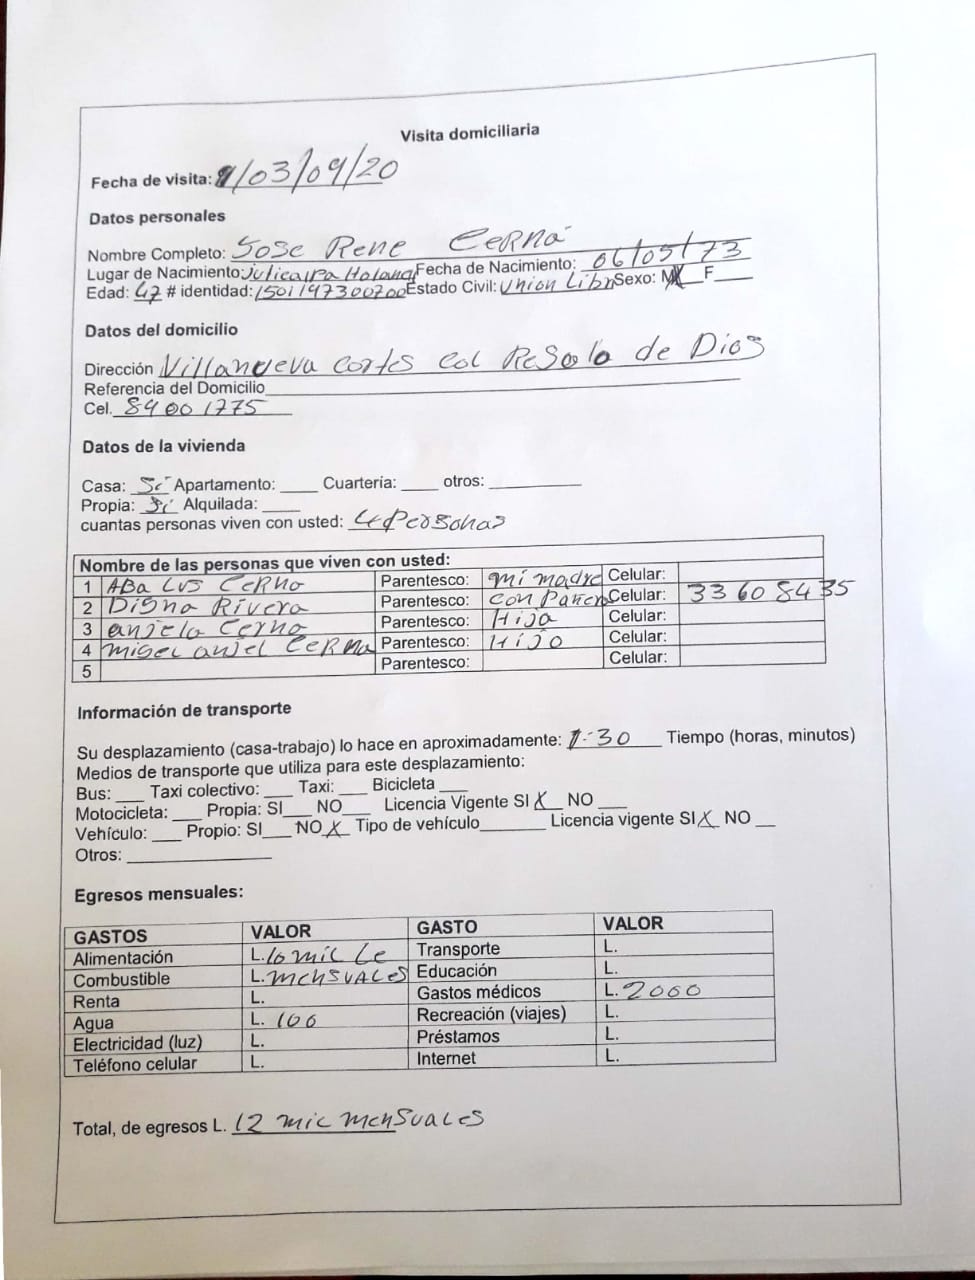 Visita domiciliaria
Fecha de visita: /03/09/20
Datos personales
Nombre Completo: Jose Rene Cerna
Lugar de Nacimiento: Juticalpa Fecha de Nacimiento: 06/05/73
Edad: 47 # identidad: 1501197300700 Estado Civil: Union Libr Sexo: MX F
Datos del domicilio
Dirección Villanueva Cortes Col de Dios
Referencia del Domicilio
Cel. 89001775
Datos de la vivienda
Casa: Si Apartamento: Cuartería: otros:
Propia: Si Alquilada:
cuantas personas viven con usted: 4 Personas
Nombre de las personas que viven con usted:
1 ABa Cerna Parentesco: mi madre Celular:
2 Digna Rivera Parentesco: conPañera Celular: 33608435
3 anjela Cerna Parentesco: Hija Celular:
4 migel anjel CeRna Parentesco: Hijo Celular:
5 Parentesco: Celular:
Información de transporte
Su desplazamiento (casa-trabajo) lo hace en aproximadamente: 1-30 Tiempo (horas, minutos)
Medios de transporte que utiliza para este desplazamiento:
Bus: Taxi colectivo: Taxi: Bicicleta
Motocicleta: Propia: SI NO Licencia Vigente SI X NO
Vehículo: Propio: SI NO X Tipo de vehículo Licencia vigente SI X NO
Otros:
Egresos mensuales:
GASTOS VALOR GASTO VALOR
Alimentación L. 10 mil Le Transporte L.
Combustible L. mensuales Educación L.
Renta L. Gastos médicos L. 2000
Agua L. 100 Recreación (viajes) L.
Electricidad (luz) L. Préstamos L.
Teléfono celular L. Internet L.
Total, de egresos L. 12 mil mensuales